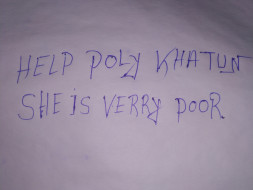 HELP POLY KHATUN
SHE IS VERRY POOR